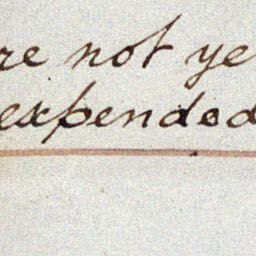 re not ye
expended